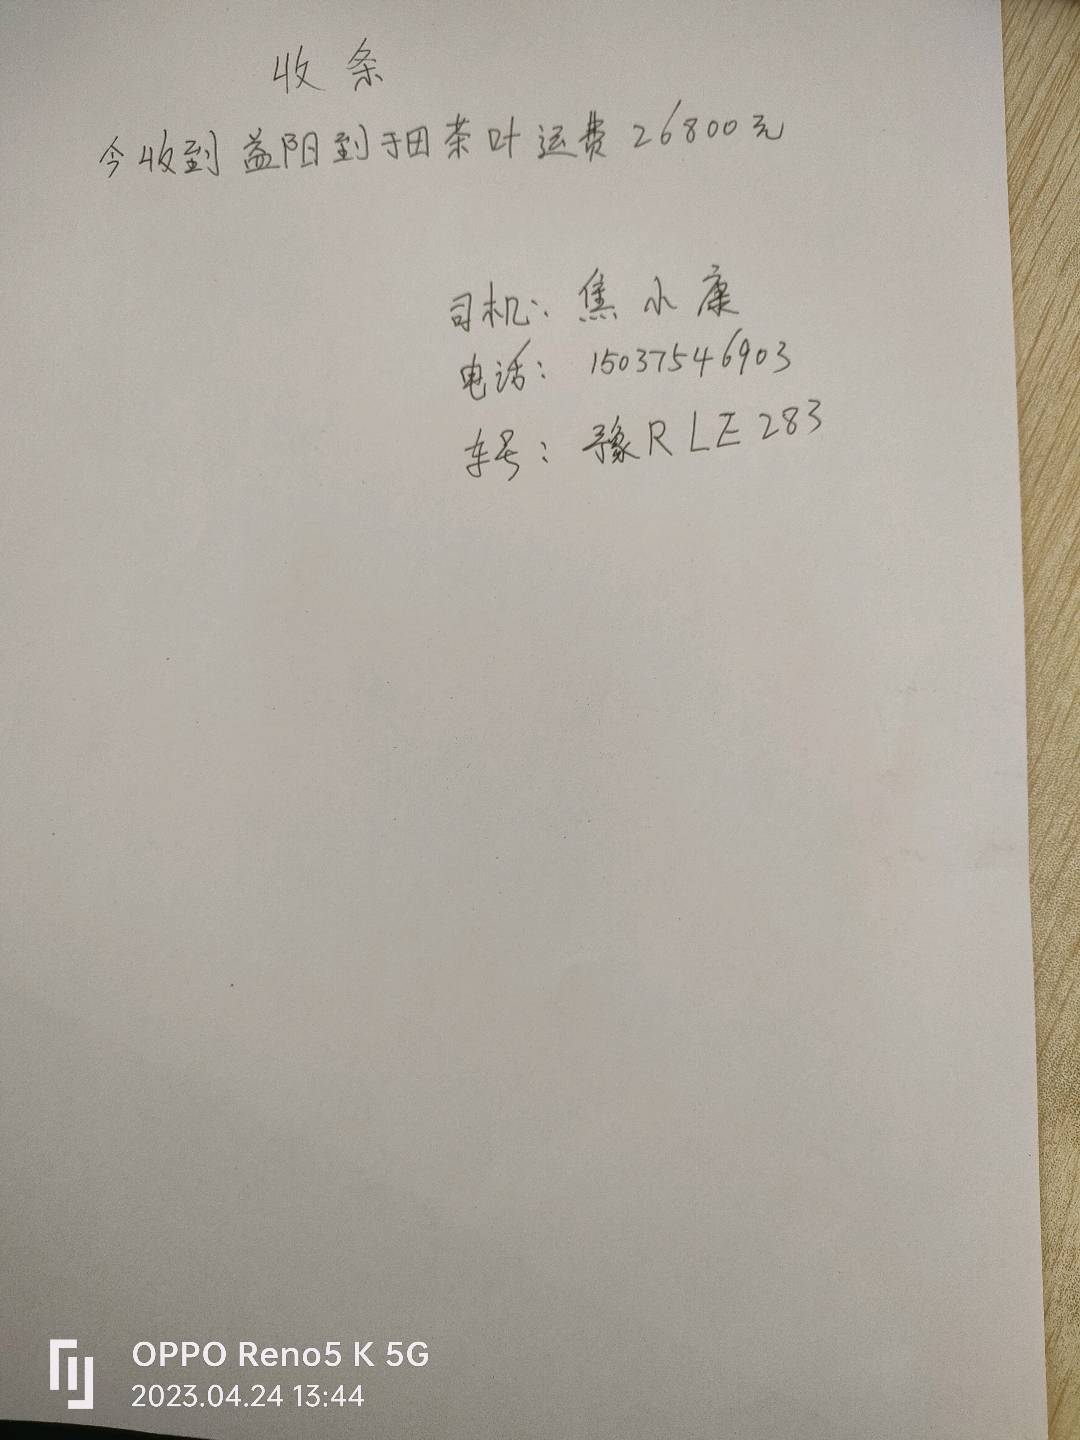 收条
今收到益阳到于田茶叶运费26800元
司机：焦小康
电话：15037546903
车号：豫RLE283
OPPO Reno5 K 5G
2023.04.24 13:44